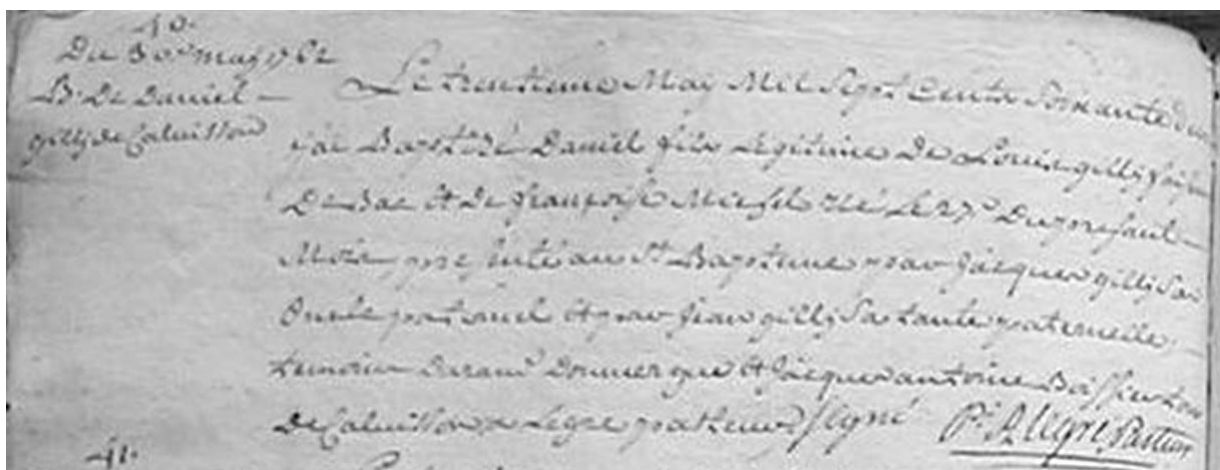 40.
Du 30e may 1762
B. De Daniel
gilly de Calvisson
Le trentieme May Mil Sept Cents Soixante deux
jai Baptizé Daniel fils Legitime De Louis gilly
De Bac Et De françoise né Le 27e Du presant
Mois presenté au St Bapteme par Jacques gilly Son
Oncle paternel Et par gilly Sa tante paternelle
temoins Durand Et Jacques antoine
De Calvisson Signé Pr. Allegre Pasteur
41.